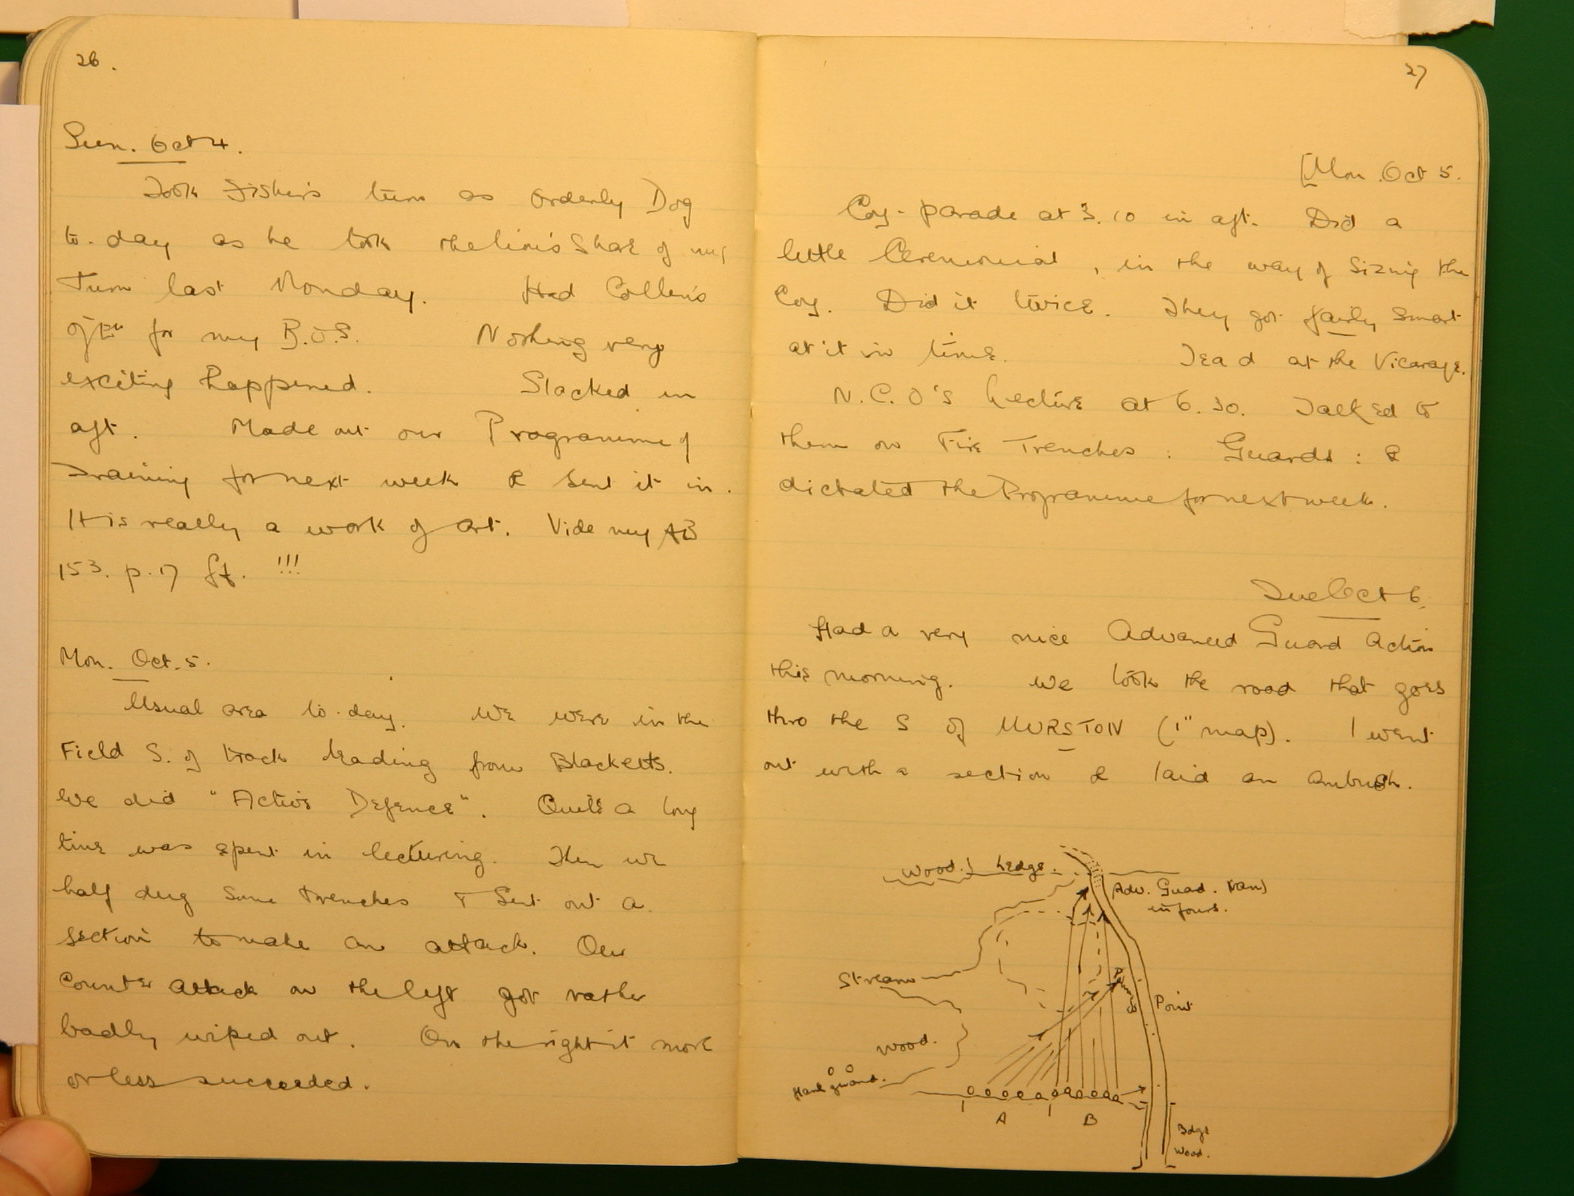 26.
Sun. Oct 4.
Took Fisher's turn as Orderly Dog
to-day as he took the lion's share of my
Turn last Monday. Had Collins
off for my B.O.S. Nothing very
exciting happened. Slacked in
aft. Made out our Programme of
Training for next week & sent it in.
It is really a work of art. Vide my AB
153. p. 17 ff. !!!
Mon. Oct. 5.
Usual area to-day. We were in the
Field S. of track leading from Blacketts.
We did "Active Defence". Quite a long
time was spent in lecturing. Then we
half dug some trenches & sent out a
section to make an attack. Our
Counter attack on the left got rather
badly wiped out. On the right it more
or less succeeded.
27
[Mon. Oct 5.
Coy-parade at 3.10 in aft. Did a
little Ceremonial, in the way of Sizing the
Coy. Did it twice. They got fairly smart
at it in time. Tea'd at the Vicarage.
N.C.O's Lecture at 6.30. Talked to
them on Fire Trenches : Guards : &
dictated the Programme for next week.
Tue Oct 6.
Had a very nice Advanced Guard Action
this morning. We took the road that goes
thro the S of MURSTON (1" map). I went
out with a section & laid an ambush.
Wood. Hedge.
Adv. Guard. (Van)
in fours.
Stream
Point
Wood.
A B
Wood.